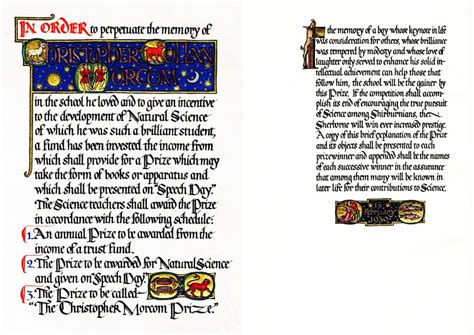 IN ORDER to perpetuate the memory of
CHRISTOPHER COLLAN
MORCOM
in the school he loved and to give an incentive
to the development of Natural Science
of which he was such a brilliant student,
a fund has been invested the income from
which shall provide for a Prize which may
take the form of books or apparatus and
which shall be presented on "Speech Day."
The Science teachers shall award the Prize
in accordance with the following schedule:
1. An annual Prize to be awarded from the
income of a trust fund.
2. The Prize to be awarded for Natural Science
and given on "Speech Day."
3. The Prize to be called—
"The Christopher Morcom Prize."
In the memory of a boy whose keynote in life
was consideration for others, whose brilliance
was tempered by modesty and whose love of
laughter only served to enhance his solid in-
tellectual achievement can help those that
follow him, the school will be the gainer by
this Prize. If the competition shall accom-
plish its end of encouraging the true pursuit
of Science among Shirburnians, then
Sherborne will win ever increased prestige.
A copy of this brief explanation of the Prize
and its objects shall be presented to each
prizewinner and appended shall be the names
of each successive winner in the assurance
that among them many will be known in
later life for their contributions to Science.
13
February
1930